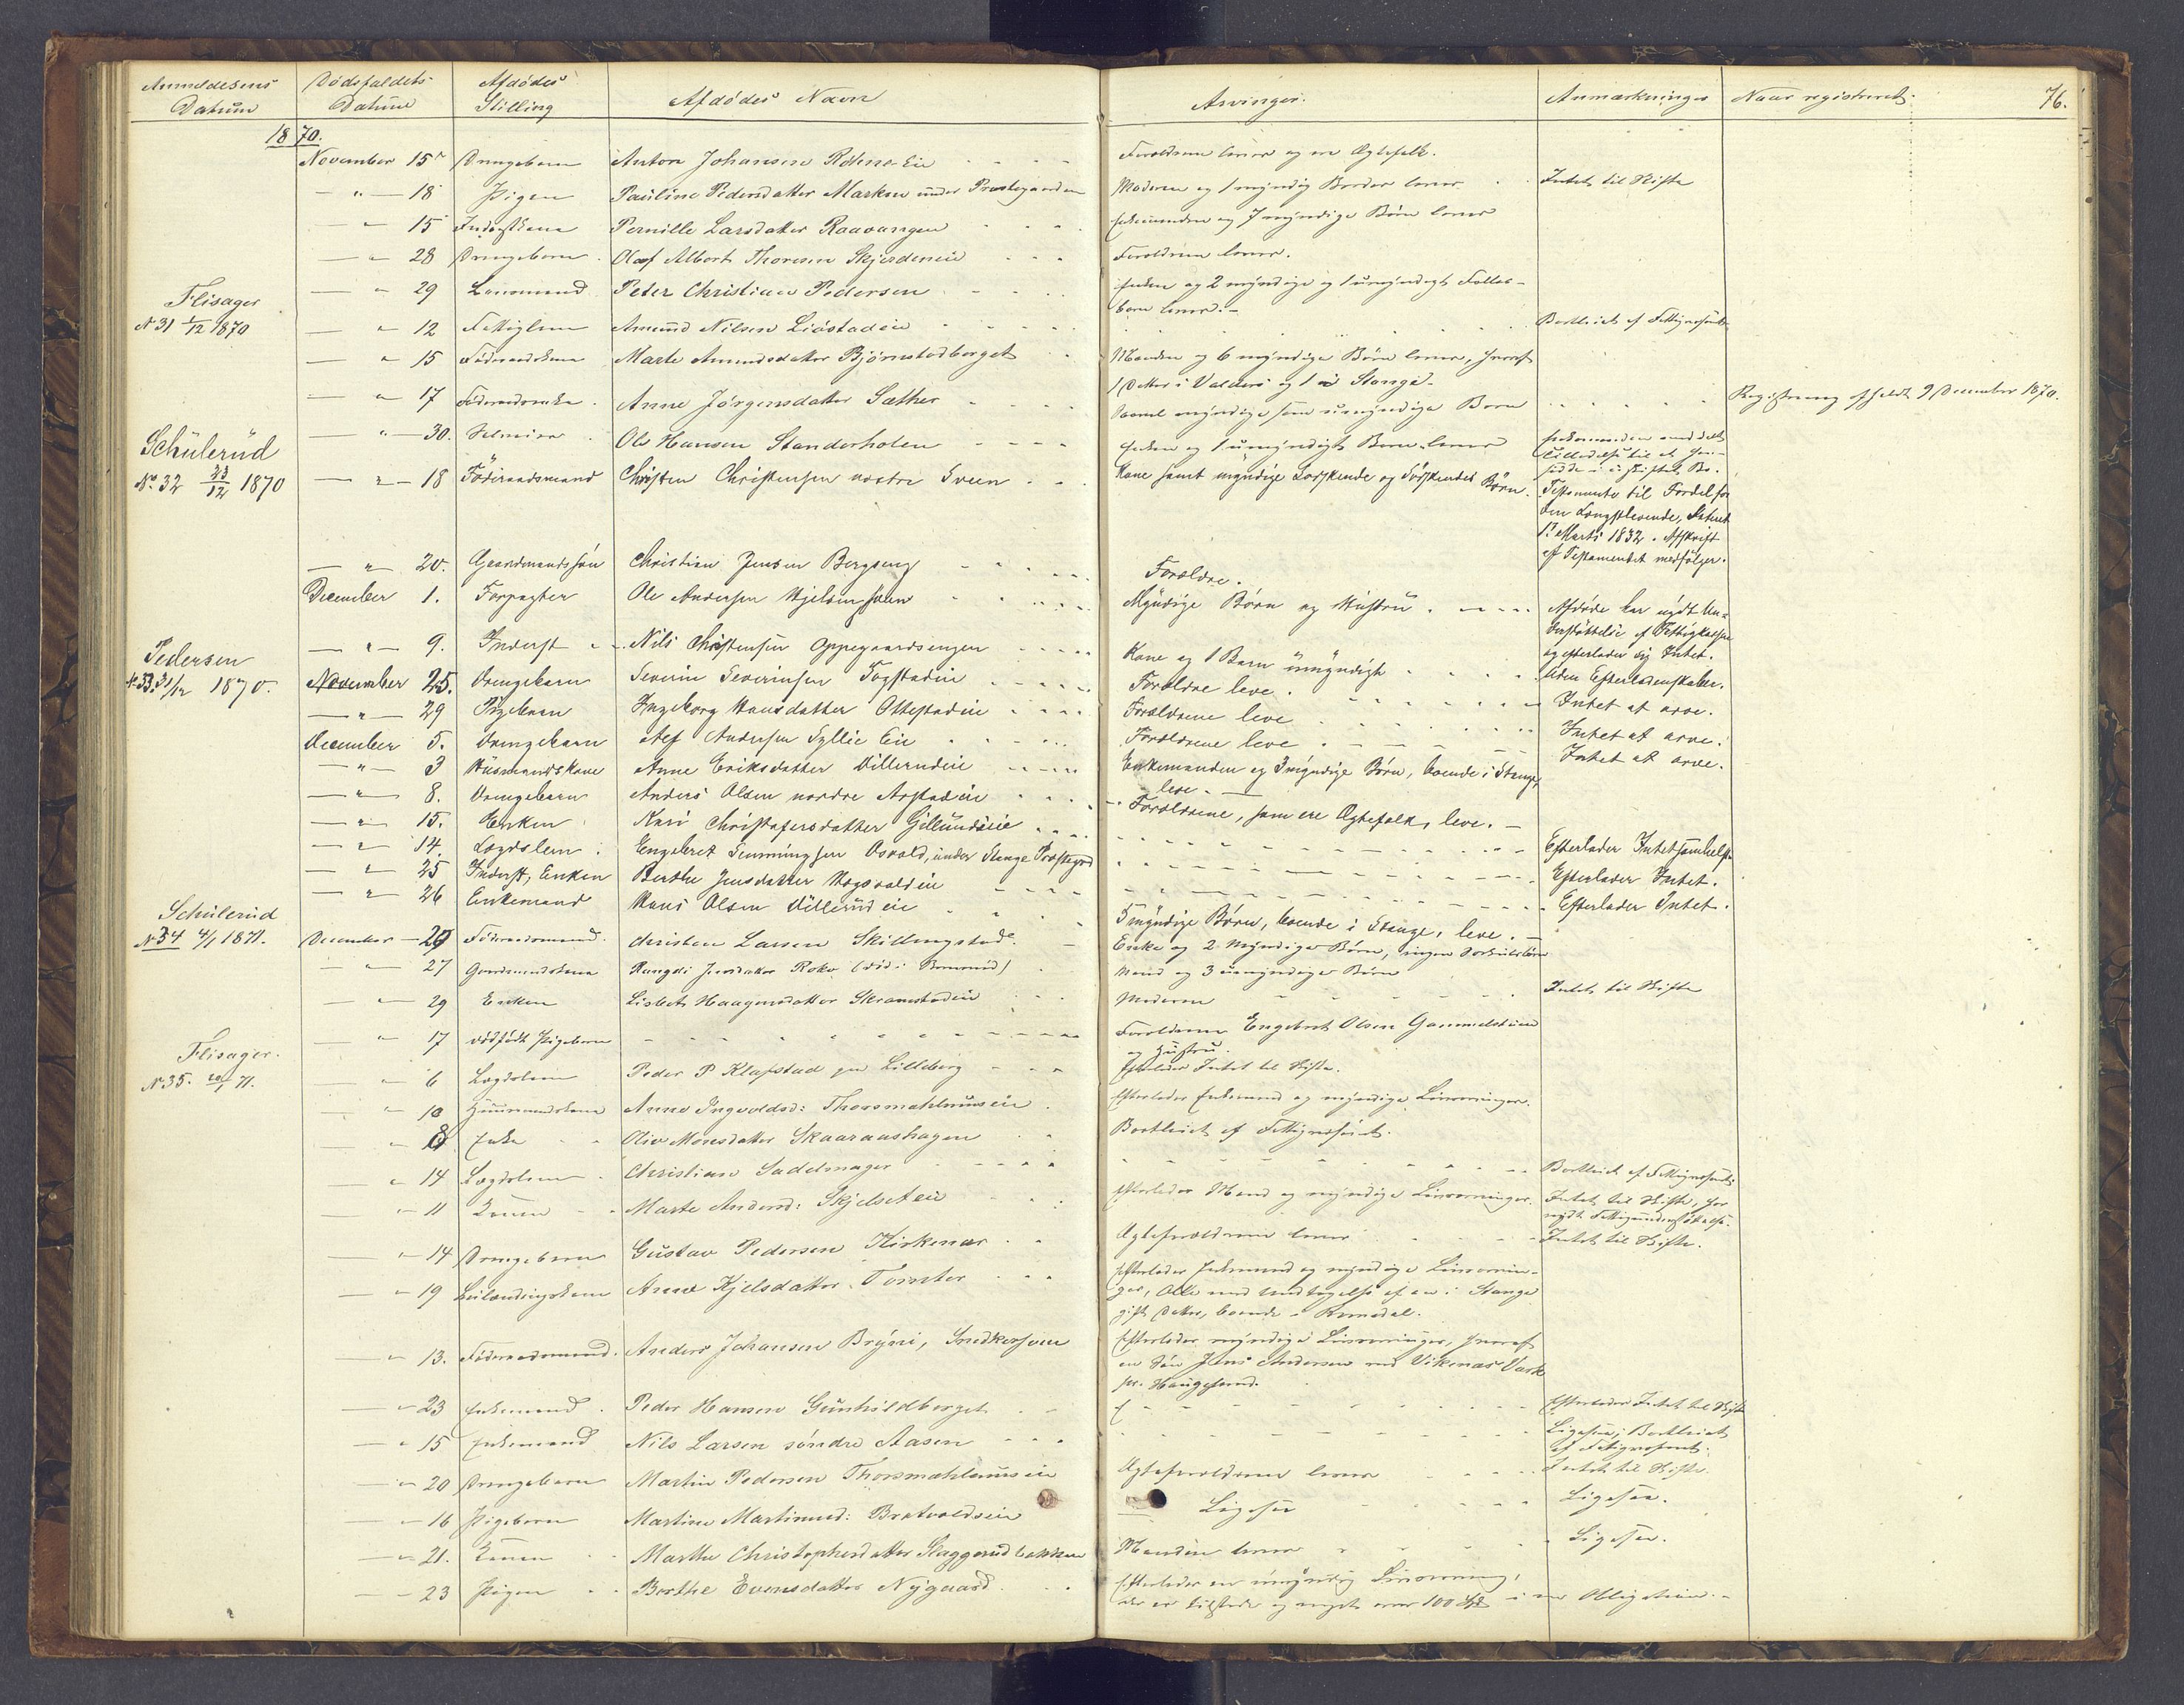 Anmeldelsens Datum | Dødsfaldets Datum | Afdødes Stilling | Afdødes Navn | Arvinger. | Anmærkninger | Naar registreret. | 76.
1870.
November 15 | Drengebarn | Anton Johansen Rotnes Eie | Forældrene lever og ere Ægtefolk.
— " — 18 | Pigen | Pauline Pedersdatter Marken under Præstegaarden | Moderen og 1 myndig Broder lever | Intet til Skifte
— " 15 | Inderstkone | Pernille Larsdatter Raavangen | Enkemanden og 7 myndige Børn lever
— " 28 | Drengebarn | Olaf Albert Thoresen Skjerdeneie | Forældrene lever.
Flisager
— " 29 | Lensmand | Peter Christian Pedersen | Enken og 2 myndige og 1 umyndigt Fælles-
børn lever. —
N 31 1/12 1870 | — " 12 | Fattiglem | Amund Nilsen Liostadeie | Bortleiet af Fattigvæsenet
— " 15 | Føderaadskone | Marte Amundsdatter Bjørnstadberget | Manden og 6 myndige Børn lever, hvoraf
1 Datter i Valders og 1 i Stange.
— " 17 | Føderaadsenke | Anne Jørgensdatter Sæther | Saavel myndige som umyndige Børn | Registrering afholdt 9 December 1870.
— " — 30. | Selveier | Ole Hansen Standerholen | Enken og 1 umyndigt Barn lever
Schülerüd
N° 32 23/12 1870 | — " — 18 | Föderaadsmand | Christen Christensen vestre Sveen | Kone samt myndige Sødskende og Södskendes Börn. | Testamente til Fordel for
den Længstlevende, dateret
1ste Marts 1832. Afskrift
af Testamentet medfølger.
— " 20. | Gaardmandssön | Christian Jensen Bergseng | Forældre.
December 1. | Forpagter | Ole Andersen Hjelmshaun | Myndige Börn og Hustru. | Afdøde har nydt Un-
derstøttelse af Fattigkassen
og efterlader sig Intet.
— " — 9. | Inderst | Nils Christensen Oppegaardsengen | Kone og 1 Barn umyndigt | Uden Efterladenskaber.
Pedersen
N. 33. 31/12 1870. | November 25. | Drengebarn | Severin Severinsen Fogstadeie | Forældre leve. | Intet at arve.
— " — 29 | Pigebarn | Ingeborg Hansdatter Ottestadeie | Forældrene leve | Intet at arve.
December 5. | Drengebarn | Alf Andersen Syllie Eie | Forældrene leve | Intet at arve.
— " — 3 | Husmandskone | Anne Eriksdatter Dillerudeie | Enkemanden og 3 myndige Børn, boende i Stange,
leve. —
— " — 8. | Drengebarn | Anders Olsen nordre Arstadeie | Forældrene, som ere Ægtefolk, leve. —
— " — 15. | Enken | Kari Christofersdatter Gillundseie | Efterlader Intetsomhelst
— " — 14. | Lægdslem | Engebret Semmingsen Osvold, under Stange Præstegrd | Efterlader Intet.
— " 25 | Inderst, Enken | Berthe Jensdatter Hogsvaldeie | Efterlader Intet.
— " 26 | Enkemand | Hans Olsen Dillerüdeie | 5 myndige Børn, boende i Stange, leve. —
Schülerüd
N 34 4/1 1871. | December — 29 | Føderaadsmand | Christen Larsen Skillingstad | Enke og 2 Myndige Børn, ingen Særkuldsbørn
— " — 27 | Gaardmandskone | Rangdi Jensdatter Roko (død i Brenerud) | Mand og 3 umyndige Børn
— " — 29 | Enken | Lisbet Haagensdatter Skramstadeie | Moderen | Intet til Skifte
— " 17 | dødfødt Pigebarn | Forældrene Engebret Olsen Gammelstuen
og Hustru.
Flisager.
N 35. 20/1 71. | — " 6 | Lægdslem | Peder P Klafstad paa Lilleberg | Efterlader Intet til Skifte.
— " 10 | Huusmandskone | Anne Ingvoldsd: Thorsmæhlumseie | Efterlader Enkemand og myndige Livsarvinger.
— " 8 | Enke | Olia Monsdatter Skaaraashagen | Bortleiet af Fattigvæsenet.
— " 14 | Lægdslem | Christian Sadelmager | Bortleiet af Fattigvæsenet
— " 11 | Konen | Marte Andersd: Skjelseteie | Efterlader Mand og myndige Livsarvinger. | Intet til Skifte, har
nydt Fattigunderstøttelse.
— " 14 | Drengebarn | Gustav Pedersen Kirkenær | Ægteforældrene lever | Intet til Skifte.
— " 19 | Leilændingskone | Anne Kjelsdatter Tomter | Efterlader Enkemand og myndige Livsarvin-
ger, Alle med Undtagelse af en i Stange
gift Datter, boende i Romedal.
— " 13. | Føderaadsmand. | Anders Johansen Bryni, Snedkersveen | Efterlader myndige Livsarvinger, hvoraf
en Søn Jens Andersen ved Vikenæs Værk
pr. Haugesund.
— " 23 | Enkemand | Peder Hansen Gunhildberget | Efterlader Intet til Skifte
— " 15 | Enkemand | Nils Larsen søndre Aasen | Ligesaa; Bortleiet
af Fattigvæsenet.
— " 20 | Drengebarn | Martin Pedersen Thorsmæhlumseie | Ægteforældrene lever | Intet til Skifte.
— " 16 | Pigebarn | Martine Martinusd: Bratvoldseie | Ligesaa | Ligesaa.
— " 21. | Konen | Marthe Christophersdatter Slaggerudbakken | Manden lever | Ligesaa.
— " 23 | Pigen | Berthe Evensdatter Nygaard | Efterlader en umyndig Livsarving,
der er tilstede og noget over 100 Spd i en Obligation. —